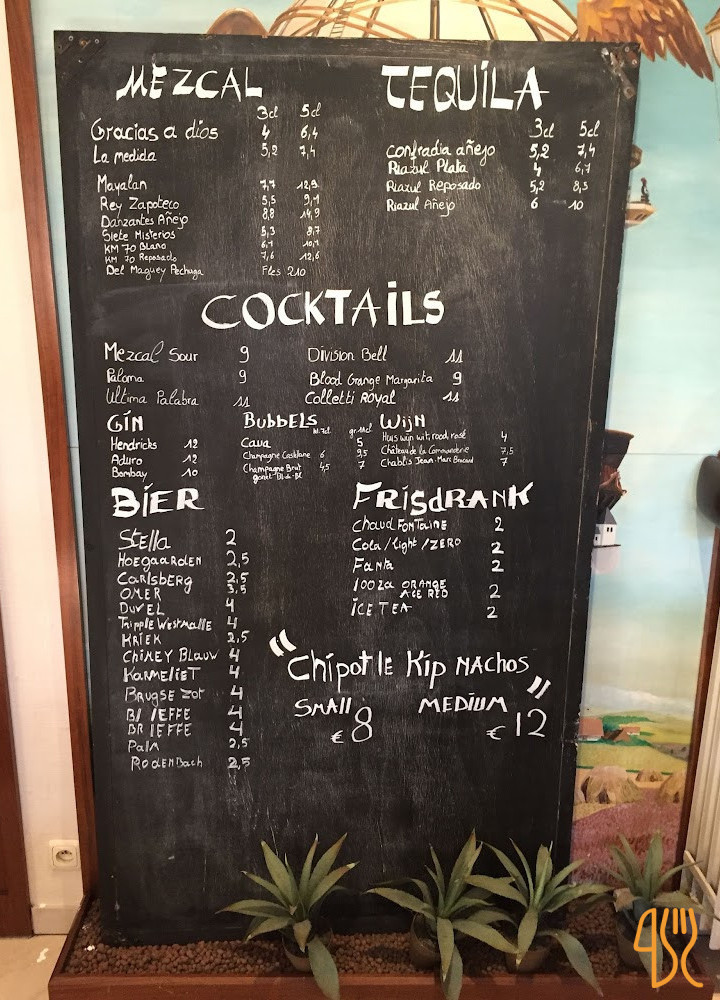 MEZCAL
3cl 5cl
Gracias a dios 4 6,4
La medida 5,2 7,4
Mayalan 7,7 12,9
Rey Zapoteco 5,5 9,1
Danzantes Añejo 8,8 14,9
Siete Misterios 5,3 8,7
KM 70 Blano 6,1 10,1
KM 70 Reposado 7,6 12,6
Del Maguey Pechuga Fles 210
TEQUiLA
3cl 5cl
confradia añejo 5,2 7,4
Riazul Plata 4 6,7
Riazul Reposado 5,2 8,5
Riazul Añejo 6 10
COCKTAiLS
Mezcal Sour 9
Paloma 9
Ultima Palabra 11
Division Bell 11
Blood Orange Margarita 9
Colletti Royal 11
GiN
Hendricks 12
Aduro 12
Bombay 10
BUBBELS
Cava 5
Champagne Castelane 6 9,5
Champagne Brut 4,5 7
WijN
Huis wijn wit, rood, rosé 4
Château de la Commanderie 7,5
Chablis Jean-Marc Brocard 7
BiER
Stella 2
HOEGAARDEN 2,5
CARLSBERG 2,5
OMER 3,5
DUVEL 4
Tripple Westmalle 4
KRiEK 2,5
CHiMEY BLAUW 4
KARMELiET 4
BRUGSE ZOT 4
Bl lEFFE 4
BR lEFFE 4
Palm 2,5
RODENBACH 2,5
FRiSdRANK
Chaud FONTaine 2
Cola/light/ZERO 2
FaNta 2
looza ORANGE
ACE RED 2
iCE TEA 2
"Chipotle Kip NACHOS"
SMAll MEDiUM
€ 8 € 12